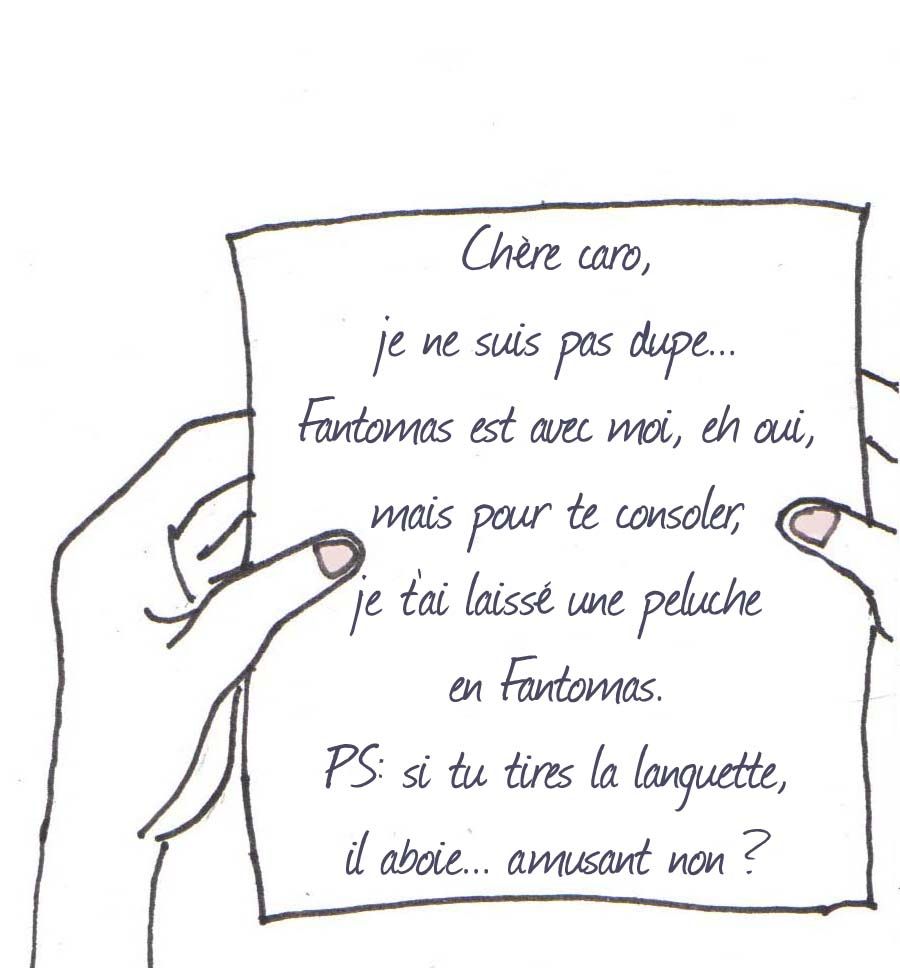 Chère caro,
je ne suis pas dupe...
Fantomas est avec moi, eh oui,
mais pour te consoler,
je t'ai laissé une peluche
en Fantomas.
PS: si tu tires la languette,
il aboie... amusant non ?